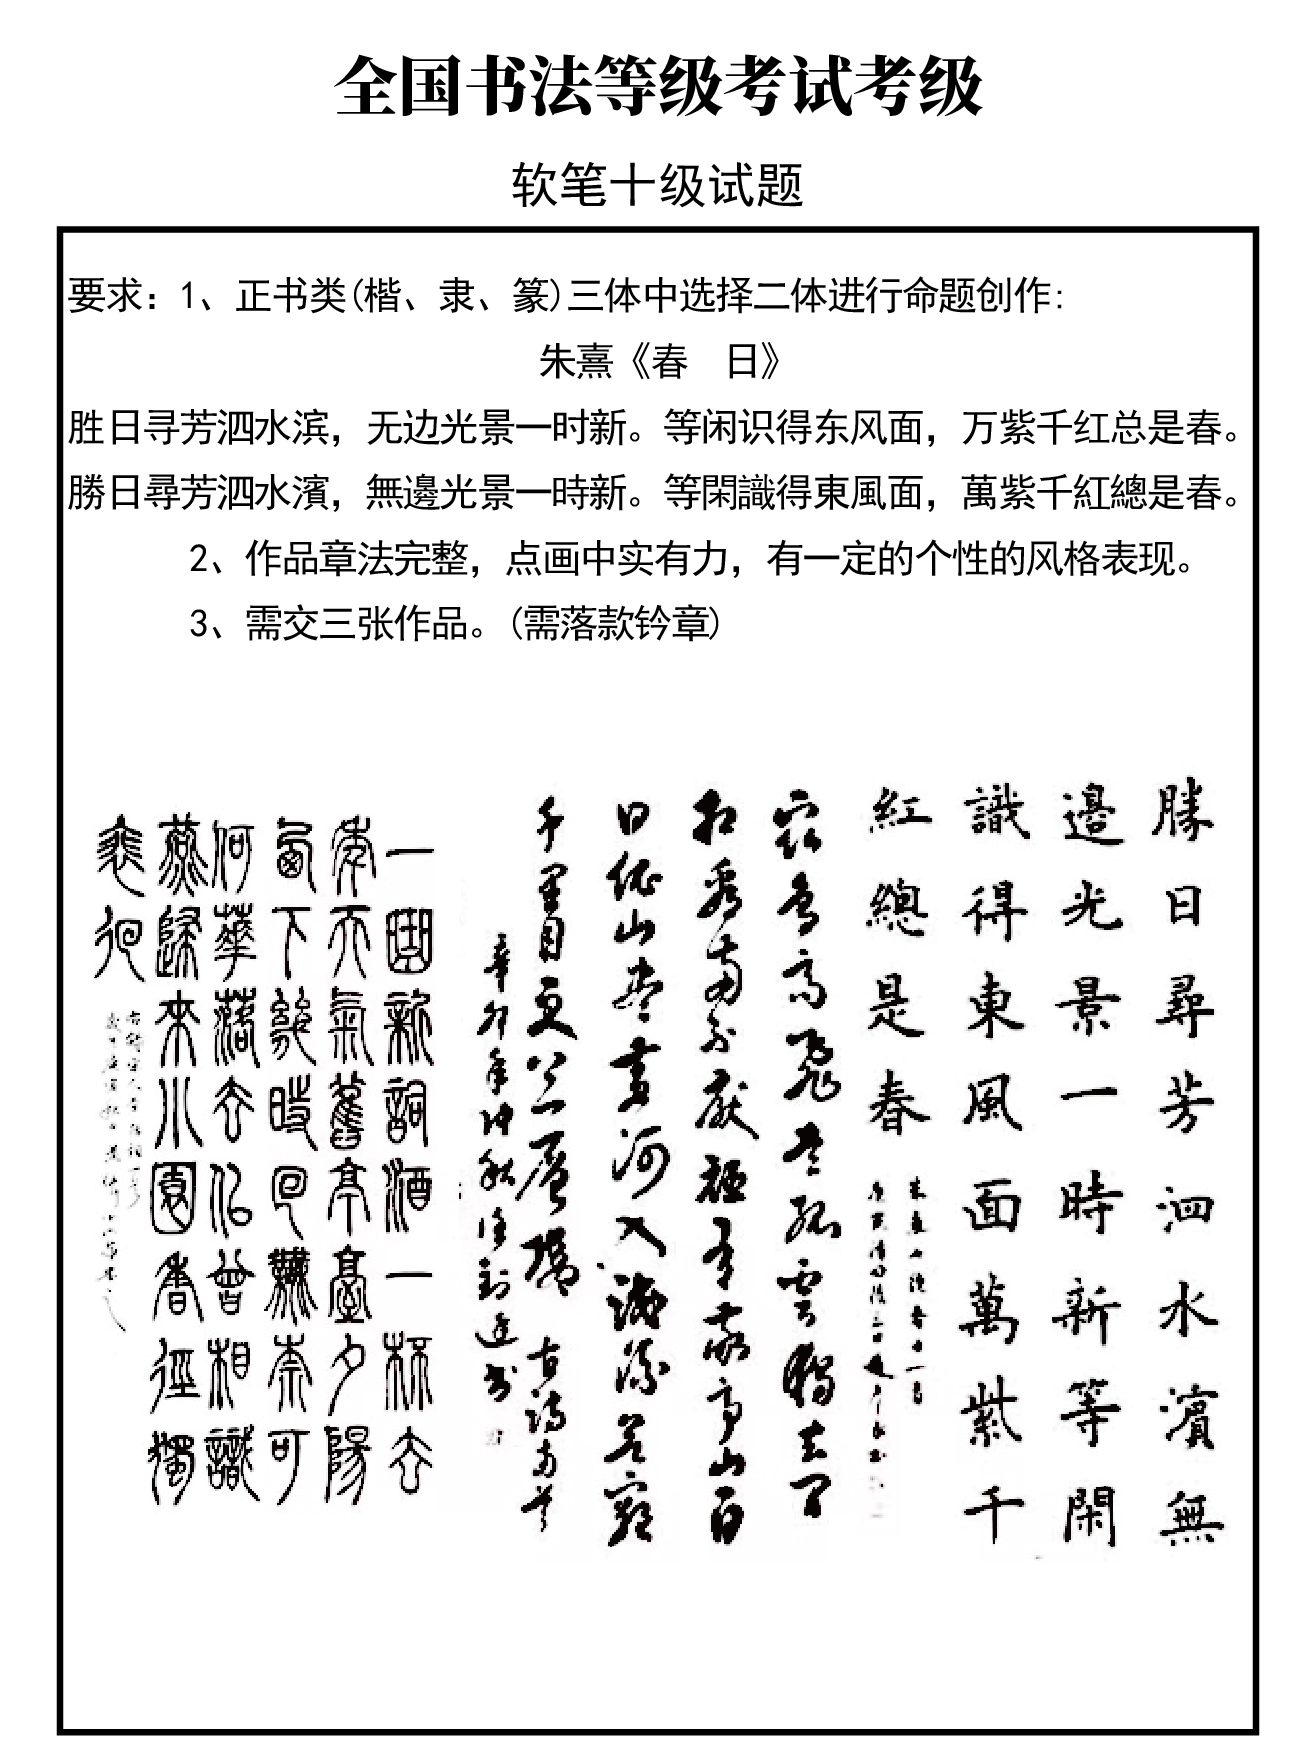 全国书法等级考试考级
软笔十级试题
要求：1、正书类(楷、隶、篆)三体中选择二体进行命题创作：
朱熹《春　日》
胜日寻芳泗水滨，无边光景一时新。等闲识得东风面，万紫千红总是春。
勝日尋芳泗水濱，無邊光景一時新。等閑識得東風面，萬紫千紅總是春。
2、作品章法完整，点画中实有力，有一定的个性的风格表现。
3、需交三张作品。(需落款钤章)
勝日尋芳泗水濱無
邊光景一時新等閑
識得東風面萬紫千
紅總是春
眾鳥高飛盡孤雲獨去閒
相看兩不厭祗有敬亭山白
日依山盡黃河入海流欲窮
千里目更上一層樓 古詩兩首
辛卯年仲秋
一曲新詞酒一杯去
年天氣舊亭臺夕陽
西下幾時回無奈可
何華落去似曾相識
燕歸來小園香徑獨
裵徊